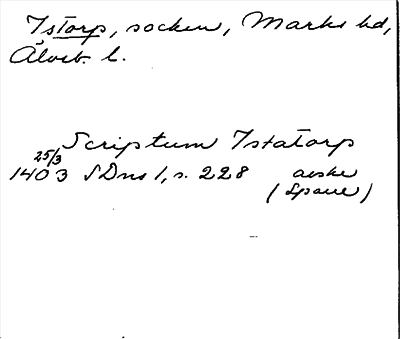 Istorp, socken, Marks hd,
Älvsb. l.
Scriptum Istatorp
25/3
1403 SDns 1, s. 228 avskr
(Spaue)